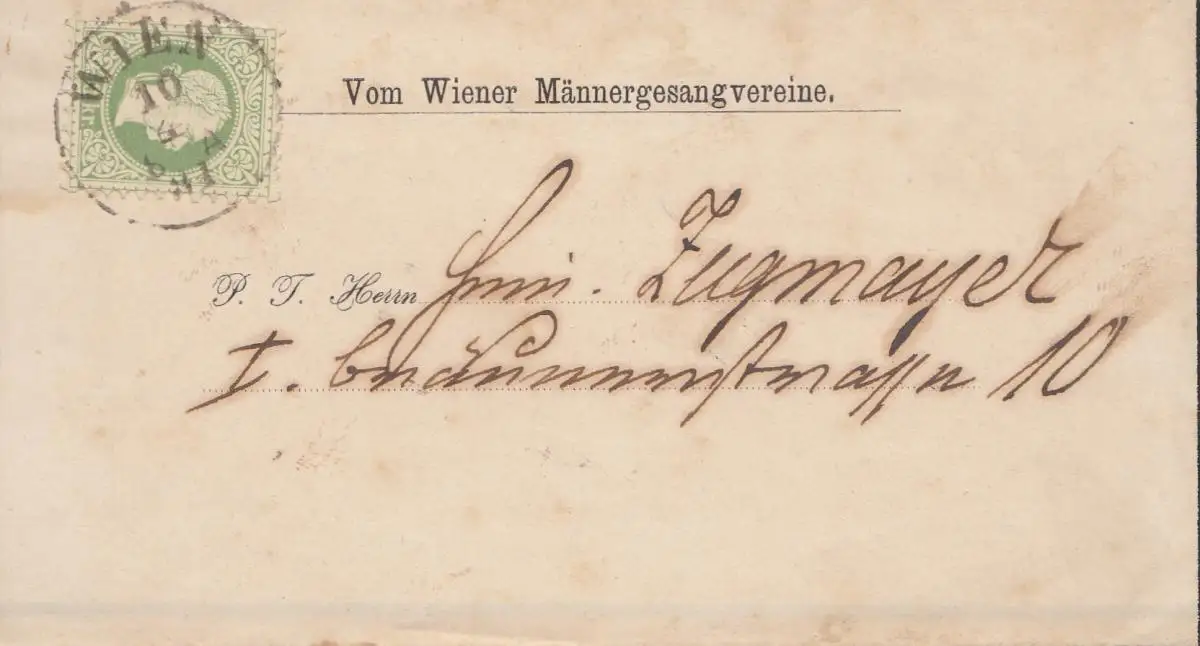 WIEN
10
Vom Wiener Männergesangvereine.
P. T. Herrn Zugmayer
I. Bräunerstrasse 10